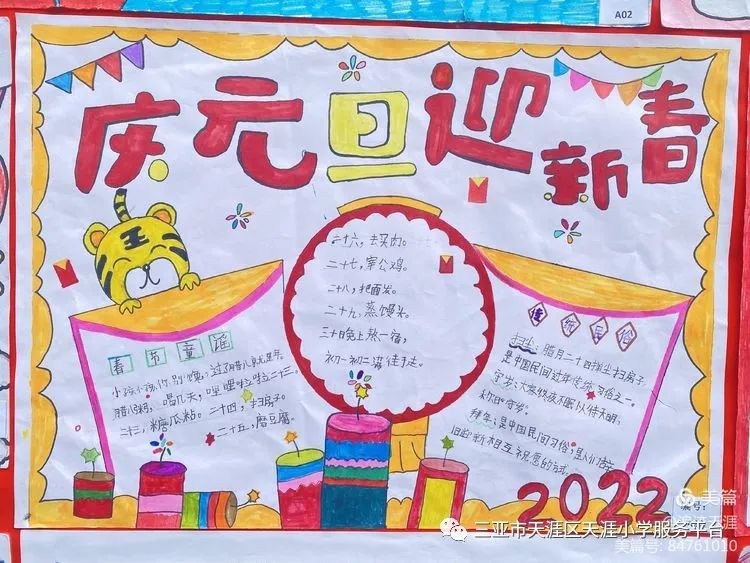 A02
庆元旦迎新春
春节童谣
小孩小孩你别馋，过了腊八就是年。
腊八粥，喝几天，哩哩啦啦二十三。
二十三，糖瓜粘。二十四，扫房子。
二十五，磨豆腐。
二十六，去买肉。
二十七，宰公鸡。
二十八，把面发。
二十九，蒸馒头。
三十晚上熬一宿，
初一初二满街走。
传统民俗
扫尘：腊月二十四掸尘扫房子，
是中国民间过年传统习俗之一。
守岁：大家熬夜不眠以待天明，
称曰守岁。
拜年：是中国民间习俗，是人们辞
旧迎新相互祝愿的方式。
2022
编号：
美篇
三亚市天涯区天涯小学服务平台
美篇号：84761010